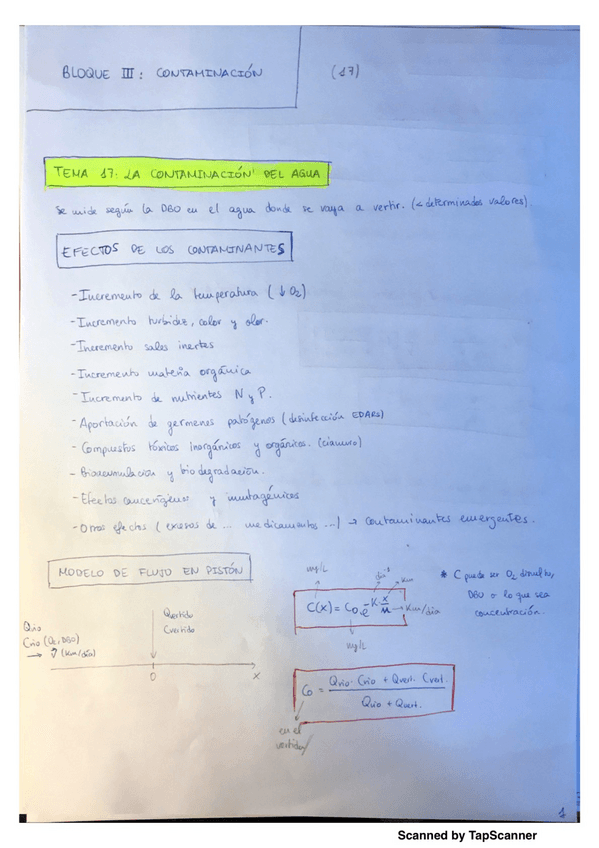 BLOQUE III: CONTAMINACIÓN
(17)
TEMA 17. LA CONTAMINACIÓN DEL AGUA
Se mide según la DBO en el agua donde se vaya a vertir. (< determinados valores).
EFECTOS DE LOS CONTAMINANTES
- Incremento de la temperatura (↓ O2)
- Incremento turbidez, color y olor.
- Incremento sales inertes
- Incremento materia orgánica
- Incremento de nutrientes N y P.
- Aportación de germenes patógenos (desinfección EDARs)
- Compuestos tóxicos inorgánicos y orgánicos. (cianuro)
- Bioacumulación y biodegradación.
- Efectos cancerígenos y mutagénicos
- Otros efectos (excesos de ... medicamentos ...) → contaminantes emergentes.
MODELO DE FLUJO EN PISTÓN
Qrio
Crio (O2, DBO)
→ v (Km/día)
Qvertido
Cvertido
0
x
mg/L
día⁻¹
Km
C(x) = C0 e^-K x/u → Km/día
mg/L
* C puede ser O2 disuelto,
DBO o lo que sea
concentración.
C0 = Qrio · Crio + Qvert. Cvert / Qrio + Qvert.
en el
vertido
1
Scanned by TapScanner